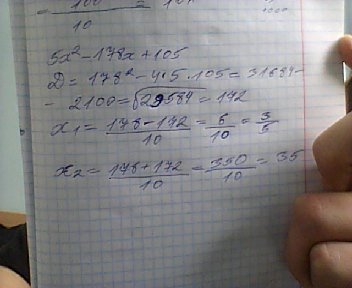 = 100 / 10 =
5x² - 178x + 105
D = 178² - 4·5·105 = 31684 -
- 2100 = √29584 = 172
x₁ = (178 - 172) / 10 = 6/10 = 3/5
x₂ = (178 + 172) / 10 = 350/10 = 35